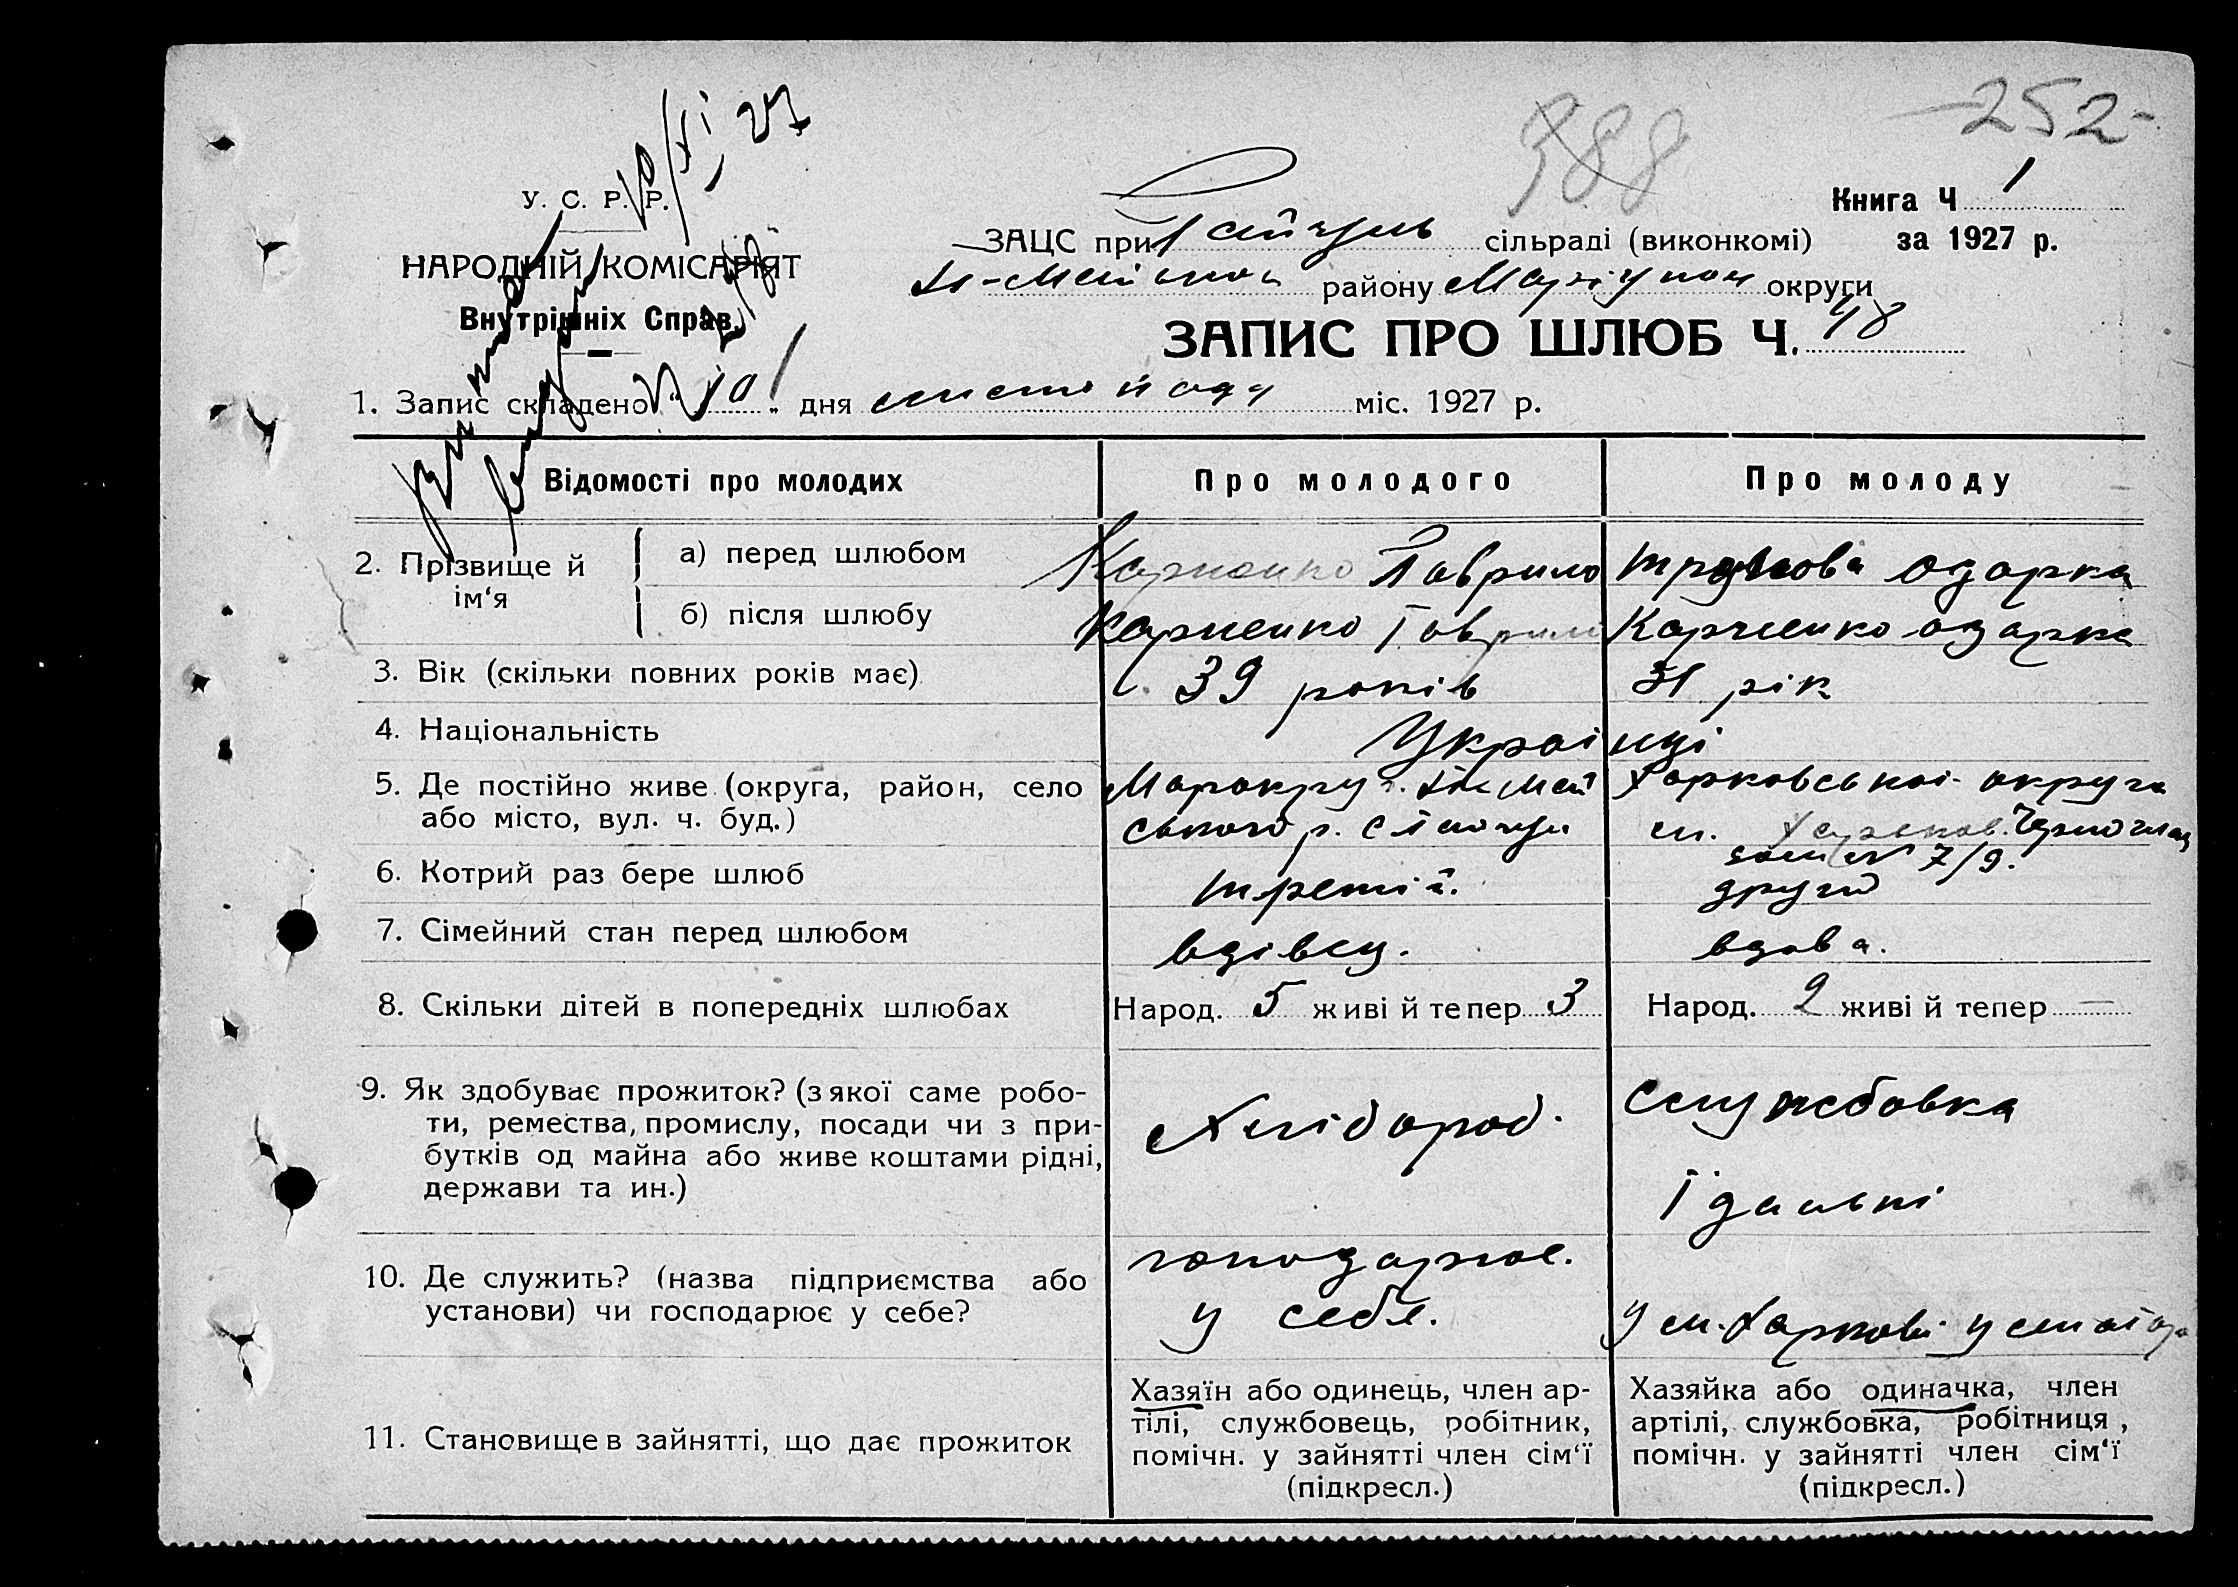 -252-
388
У. С. Р. Р.
10/XI, 27
Книга Ч 1
ЗАЦС при сільраді (виконкомі)
за 1927 р.
НАРОДНІЙ КОМІСАРІЯТ
району Маріупол округи
Внутрішніх Справ.
ЗАПИС ПРО ШЛЮБ Ч. 48
1. Запис складено „10" дня листопаду міс. 1927 р.
Відомості про молодих
Про молодого
Про молоду
2. Прізвище й ім‘я
а) перед шлюбом
Гаврило
Одарка
б) після шлюбу
Гаврило
Одарка
3. Вік (скільки повних років має)
39 років
31 рік
4. Національність
Українці
5. Де постійно живе (округа, район, село
або місто, вул. ч. буд.)
Харковської округи
7/9.
6. Котрий раз бере шлюб
третій.
другий
7. Сімейний стан перед шлюбом
вдівец.
вдова.
8. Скільки дітей в попередніх шлюбах
Народ. 5 живі й тепер 3
Народ. 2 живі й тепер —
9. Як здобуває прожиток? (з якої саме робо-
ти, ремества, промислу, посади чи з при-
бутків од майна або живе коштами рідні,
держави та ин.)
Хлібороб.
Службовка
їдальні
10. Де служить? (назва підприємства або
установи) чи господарює у себе?
господарює.
у себе.
у м. Харкові у
11. Становище в зайнятті, що дає прожиток
Хазяїн або одинець, член ар-
тілі, службовець, робітник,
помічн. у зайнятті член сім‘ї
(підкресл.)
Хазяйка або одиначка, член
артілі, службовка, робітниця,
помічн. у зайнятті член сім‘ї
(підкресл.)